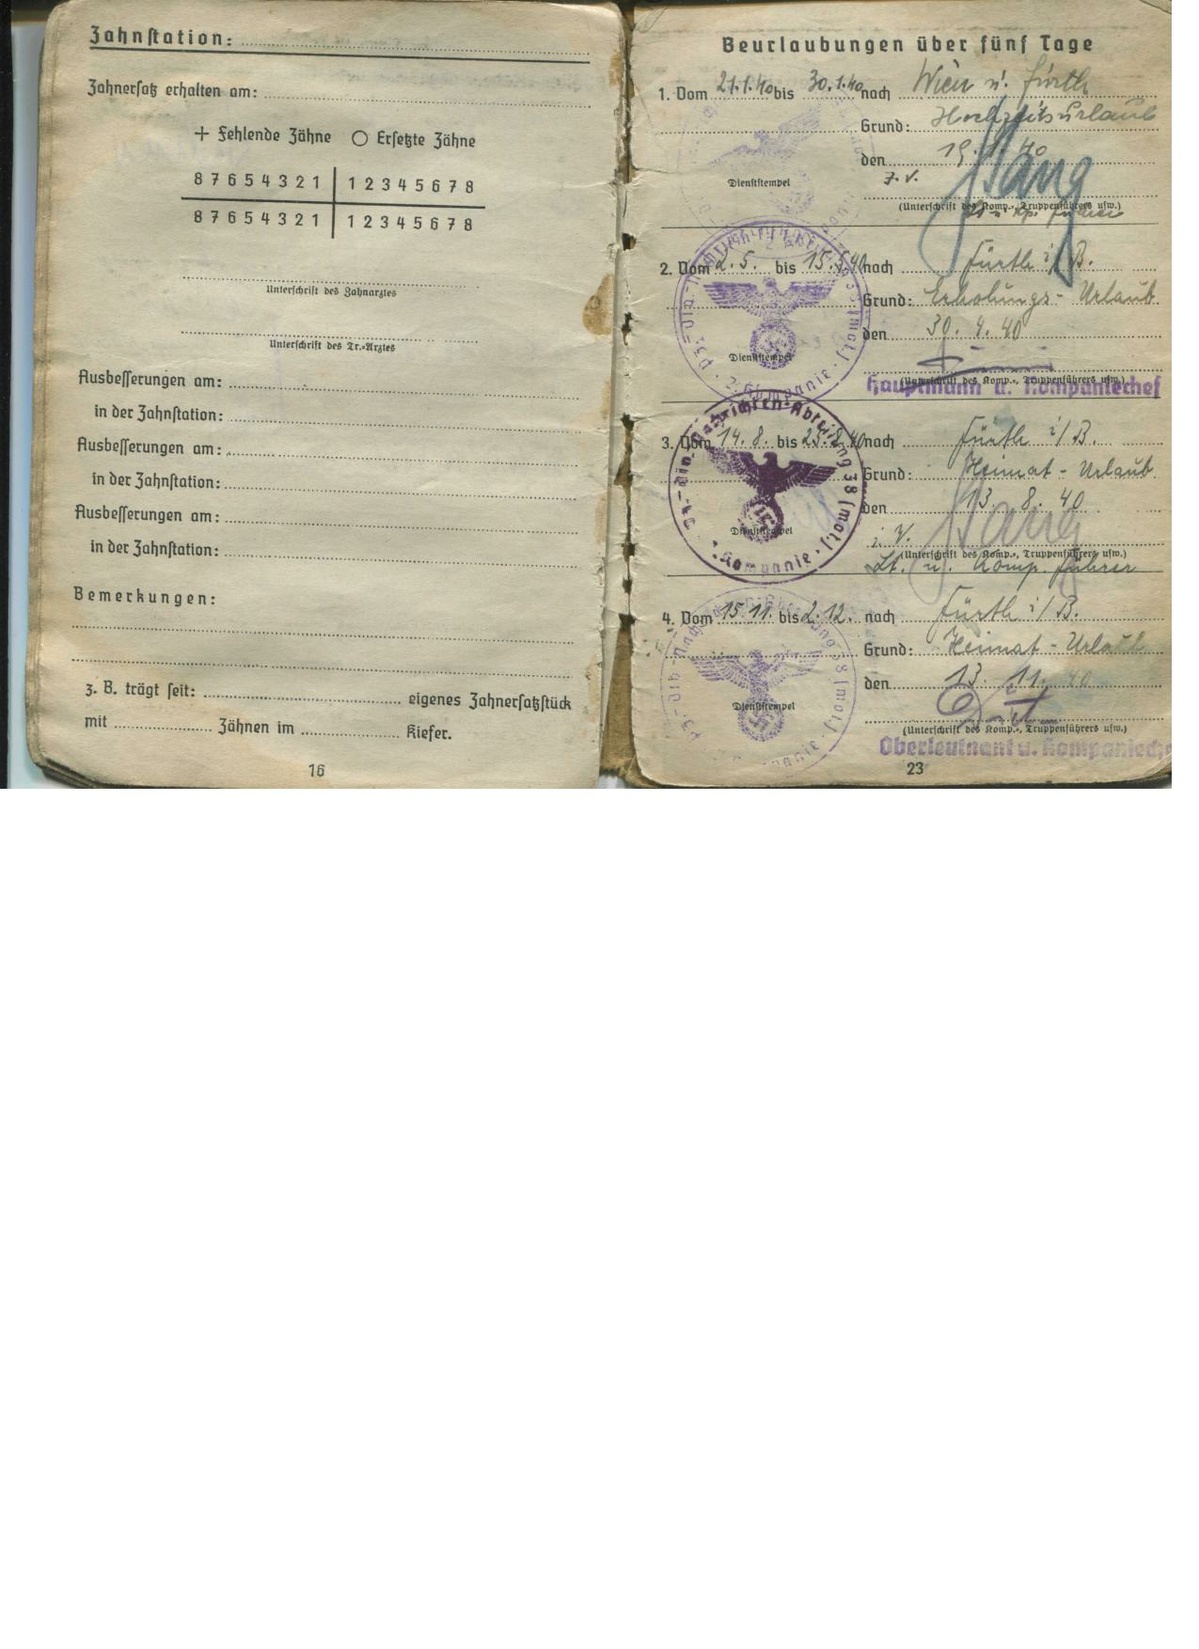 Zahnstation:
Zahnersatz erhalten am:
+ Fehlende Zähne ○ Ersetzte Zähne
8 7 6 5 4 3 2 1 1 2 3 4 5 6 7 8
8 7 6 5 4 3 2 1 1 2 3 4 5 6 7 8
Unterschrift des Zahnarztes
Unterschrift des Tr.-Arztes
Ausbesserungen am:
in der Zahnstation:
Ausbesserungen am:
in der Zahnstation:
Ausbesserungen am:
in der Zahnstation:
Bemerkungen:
z. B. trägt seit: eigenes Zahnersatzstück
mit Zähnen im Kiefer.
16
Beurlaubungen über fünf Tage
1. Vom 21.1.40 bis 30.1.40 nach Wien u. Fürth
Grund: Hochzeitsurlaub
den 19. 1. 40
Dienststempel
(Unterschrift des Komp.-, Truppenführers usw.)
2. Vom 2. 5. bis 15. 5. 40 nach Fürth i/B.
Grund: Erholungs-Urlaub
den 30. 4. 40
Dienststempel
(Unterschrift des Komp.-, Truppenführers usw.)
Hauptmann u. Kompaniechef
3. Vom 14. 8. bis 25. 8. 40 nach Fürth i/B.
Grund: Heimat-Urlaub
den 13. 8. 40
Pz.-Div.-Nachrichten-Abteilung 38 (mot.)
Kompanie
Dienststempel
i. V.
(Unterschrift des Komp.-, Truppenführers usw.)
Lt. u. Komp. führer
4. Vom 15. 11. bis 2. 12. nach Fürth i/B.
Grund: Heimat-Urlaub
den 13. 11. 40
Dienststempel
(Unterschrift des Komp.-, Truppenführers usw.)
Oberleutnant u. Kompaniche
23